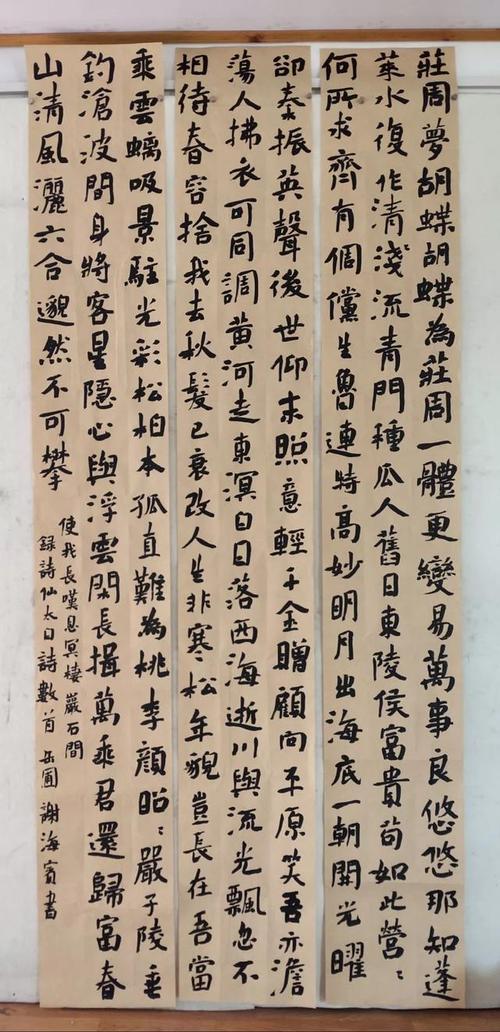 莊周夢胡蝶胡蝶為莊周一體更變易萬事良悠悠那知蓬
萊水復作清淺流青門種瓜人舊日東陵侯富貴苟如此營〻
何所求齊有倜儻生魯連特高妙明月出海底一朝開光曜
卻秦振英聲後世仰末照意輕千金贈顧向平原笑吾亦澹
蕩人拂衣可同調黃河走東溟白日落西海逝川與流光飄忽不
相待春容捨我去秋髮已衰改人生非寒松年貌豈長在吾當
乘雲螭吸景駐光彩松柏本孤直難為桃李顏昭〻嚴子陵垂
釣滄波間身將客星隱心與浮雲閑長揖萬乘君還歸富春
山清風灑六合邈然不可攀
使我長嘆息冥棲巖石間
錄詩仙太白詩數首 岳圃 謝海賓書